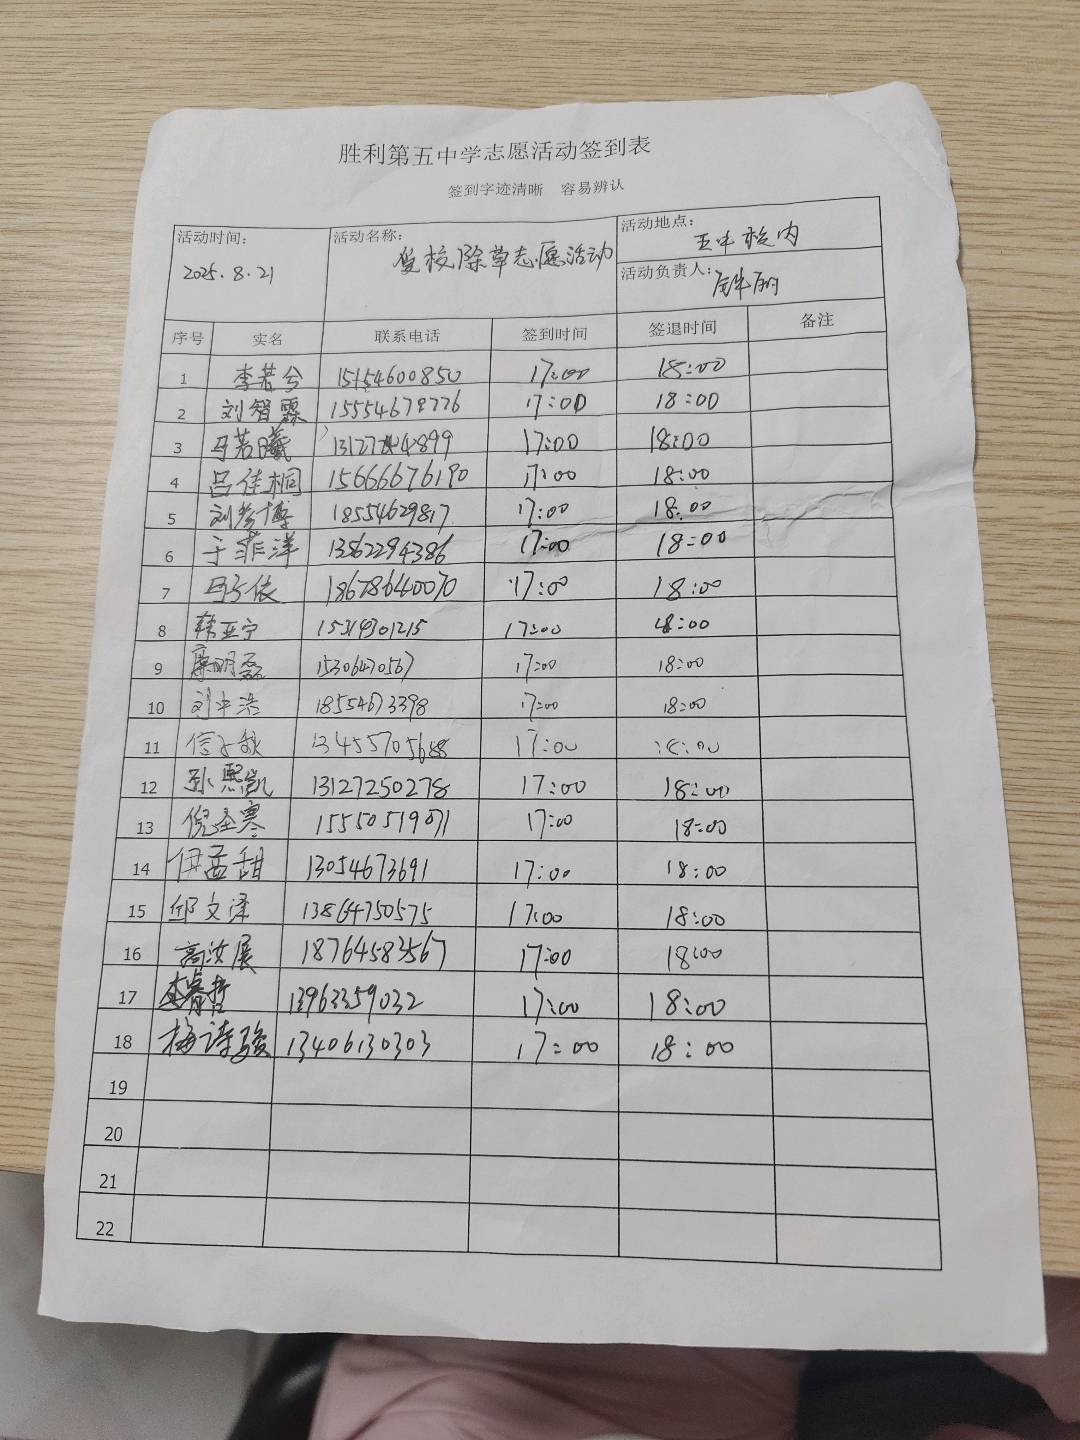 胜利第五中学志愿活动签到表
签到字迹清晰 容易辨认
活动时间: 活动名称: 活动地点:
2025.8.21 校除草志愿活动 五中校内
活动负责人:
序号 实名 联系电话 签到时间 签退时间 备注
1 李若兮 15154600850 17:00 18:00
2 刘智霖 17:00 18:00
3 马若曦 17:00 18:00
4 吕佳桐 15666676190 17:00 18:00
5 刘彦博 18554629817 17:00 18:00
6 于菲洋 13562294386 17:00 18:00
7 18678640070 17:00 18:00
8 韩亚宁 17:00 18:00
9 廉明磊 15306470567 17:00 18:00
10 刘中浩 18554673398 17:00 18:00
11 17:00
12 孙熙凯 13127250278 17:00 18:00
13 倪圣寒 15550519071 17:00 18:00
14 伊孟甜 13054673691 17:00 18:00
15 邱文泽 13864750575 17:00 18:00
16 高汝展 18764583567 17:00 18:00
17 13963359032 17:00 18:00
18 梅诗骏 13406130303 17:00 18:00
19
20
21
22